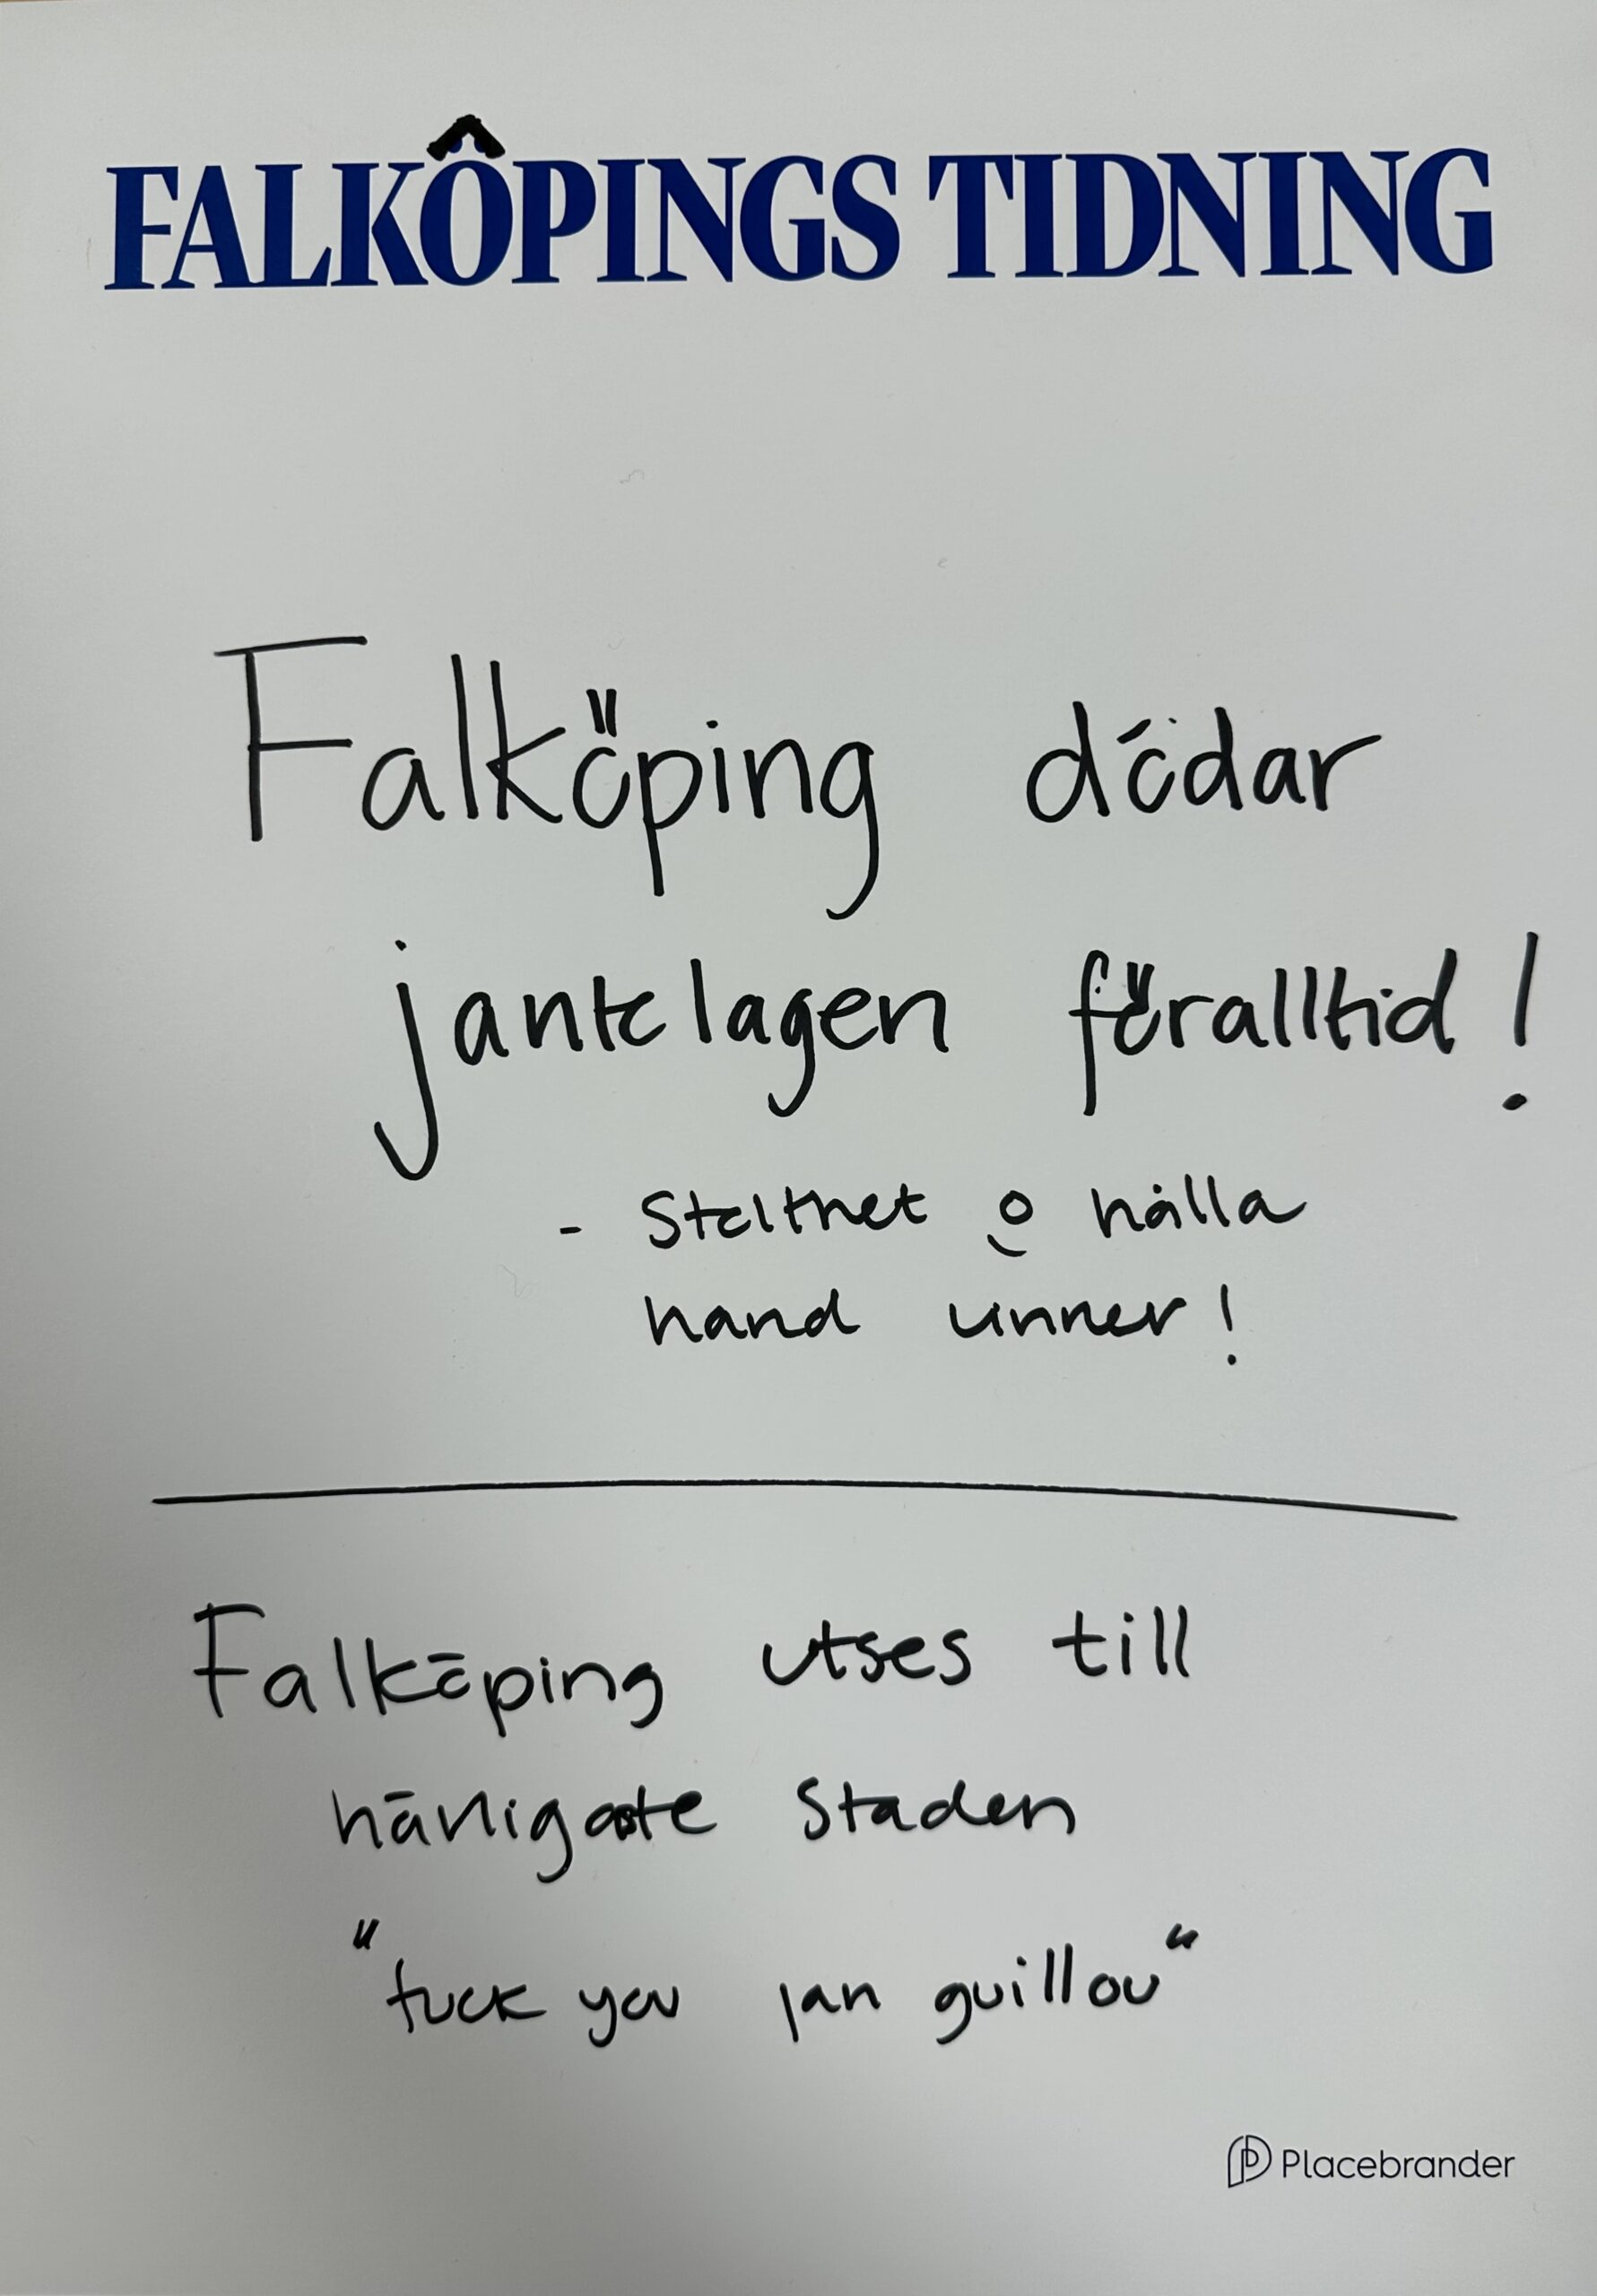 FALKÖPINGS TIDNING
Falköping dödar
jantelagen föralltid!
- Stolthet o hålla
hand vinner!
Falköping utses till
härligaste staden
"fuck you jan guillou"
Placebrander